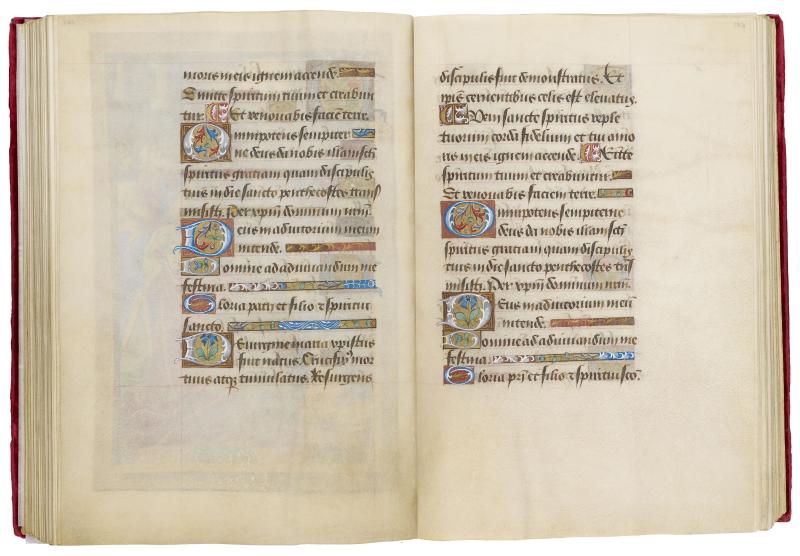 moris in eis ignem accende.
Emitte spiritum tuum et creabun
tur. Et renovabis faciē terre.
Omnipotens sempiter
ne deus da nobis illam sctī
spiritus gratiam quam discipulis
tuis in die sancto penthecostes trans
misisti. Per xpm̄ dominum nrm̄.
Deus in adiutorium meum
intende.
Domine ad adiuvandum me
festina.
Gloria patri et filio et spiritui
sancto.
De virgine maria xpistus
fuit natus. Crucifixꝰ mor
tuus atqꝫ tumulatus. Resurgens
discipulis fuit demonstratus. Et
ipīs cernentibus celis est elevatus.
Veni sancte spiritus reple
tuorum corda fidelium et tui amo
ris in eis ignem accende. Emitte
spiritum tuum et creabuntur.
Et renovabis faciem terre.
Omnipotens sempiterne
deus da nobis illam sctī
spiritus gratiam quam discipulis
tuis in die sancto penthecostes trās
misisti. Per xpm̄ dominum nrm̄.
Deus in adiutorium meū
intende.
Domine ad adiuvandum me
festina.
Gloria pri et filio et spiritui scō.